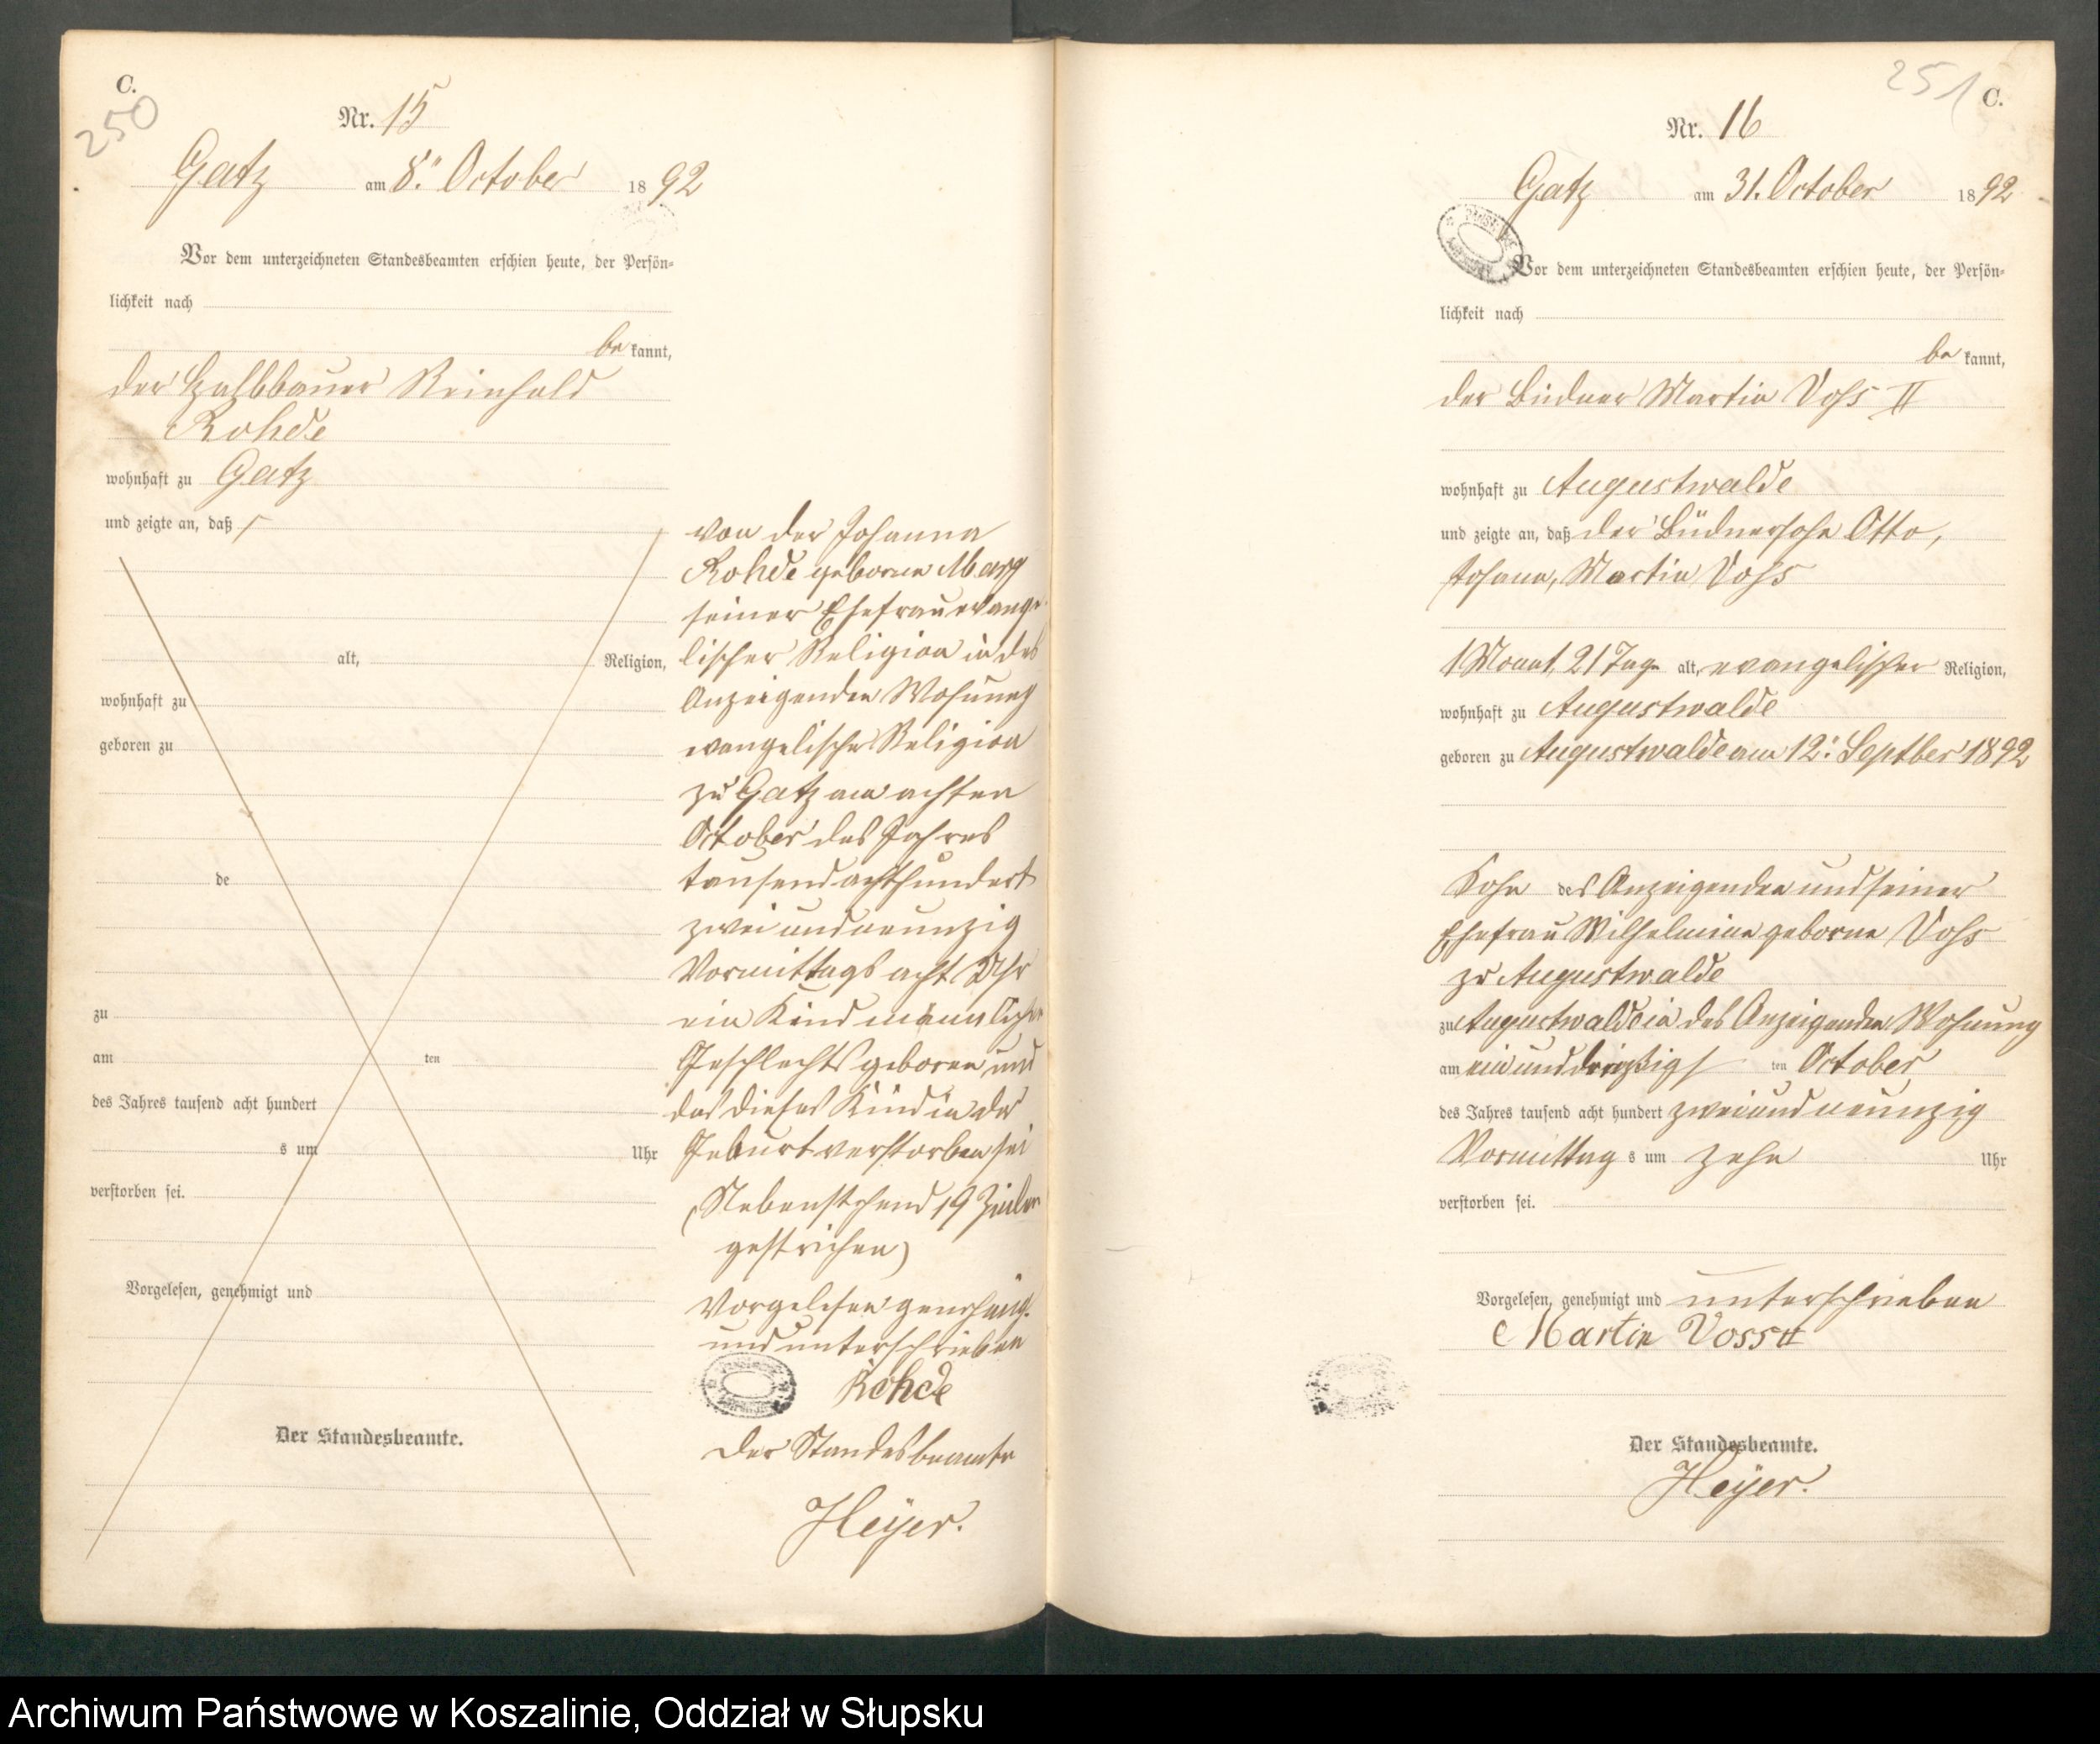 C.
250
Nr. 15
Gatz am 8ten October 1892
Vor dem unterzeichneten Standesbeamten erschien heute, der Persön-
lichkeit nach
be kannt,
der Halbbauer Reinhold
Rohde
wohnhaft zu Gatz
und zeigte an, daß
alt, Religion,
wohnhaft zu
geboren zu
de
zu
am ten
des Jahres tausend acht hundert
s um Uhr
verstorben sei.
Vorgelesen, genehmigt und
Der Standesbeamte.
von der Johanna
Rohde geborne Marg
seiner Ehefrau evange-
lischer Religion in des
Anzeigenden Wohnung
evangelischer Religion
zu Gatz am achten
October des Jahres
tausend achthundert
zwei und neunzig
Vormittags acht Uhr
ein Kind männlichen
Geschlechts geboren und
das dieses Kind in der
Geburt verstorben sei
(Nebenstehend 19 Zeilen
gestrichen)
Vorgelesen genehmigt
und unterschrieben
Rohde
Der Standesbeamte
Heÿer.
251
C.
Nr. 16
Gatz am 31. October 1892
Vor dem unterzeichneten Standesbeamten erschien heute, der Persön-
lichkeit nach
be kannt,
der Büdner Martin Voss II
wohnhaft zu Augustwalde
und zeigte an, daß der Büdnersohn Otto,
Johann, Martin Voss
1 Monat, 21 Tage alt, evangelischer Religion,
wohnhaft zu Augustwalde
geboren zu Augustwalde am 12. Septber 1892
Sohn des Anzeigenden und seiner
Ehefrau Wilhelmine geborne Voss
zu Augustwalde
zu Augustwalde in des Anzeigenden Wohnung
am ein und dreizigs ten October
des Jahres tausend acht hundert zwei und neunzig
Vormittag s um zehn Uhr
verstorben sei.
Vorgelesen, genehmigt und unterschrieben
Martin Voss II
Der Standesbeamte.
Heÿer.
Archiwum Państwowe w Koszalinie, Oddział w Słupsku